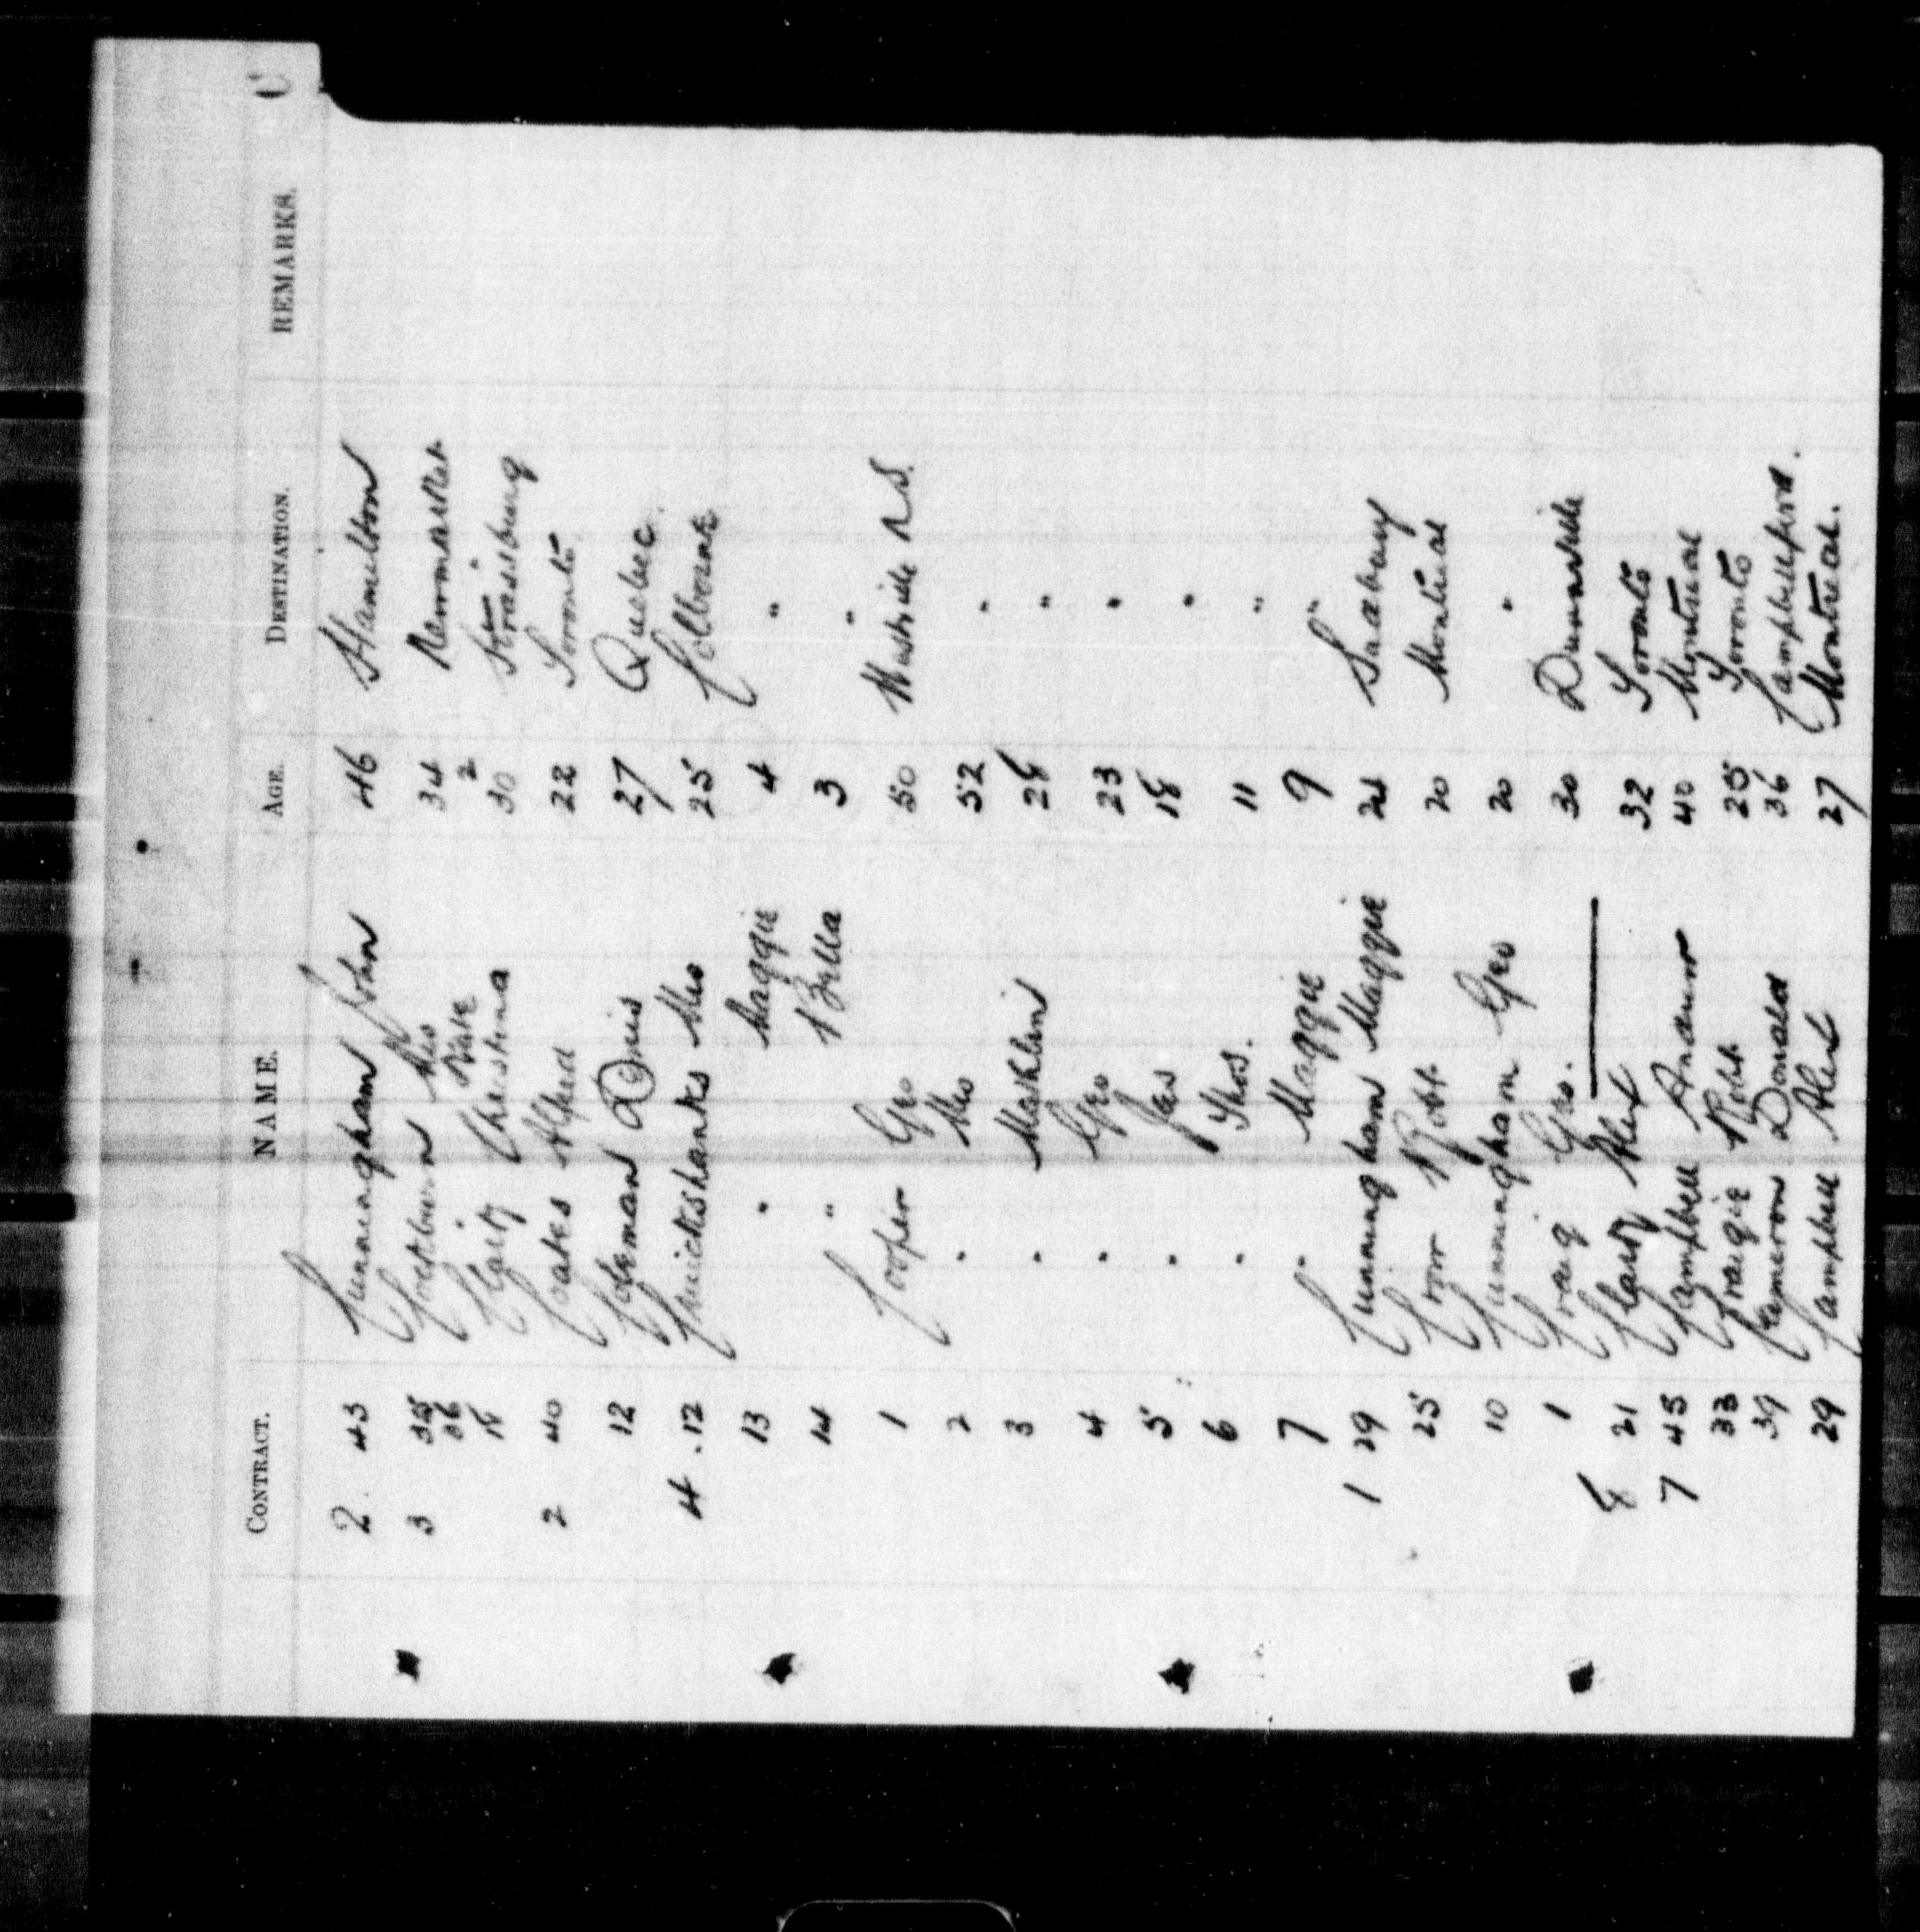 C
CONTRACT. NAME. AGE. DESTINATION. REMARKS.
2 43 Cunningham John 46 Hamilton
3 35 Cockburn Mrs 34 Newmarket
36 Kate 2
18 Christina 30 Strassburg
2 40 Coates Alfred 22 Toronto
12 Coleman 27 Quebec
4 12 Cruickshanks Mrs 25 Colborne
13 " Maggie 4 "
14 " Bella 3 "
1 Cooper Geo 50 Westville N.S.
2 " Mrs 52 "
3 " 28 "
4 " Geo 23 "
5 " Jas 18 "
6 " Thos. 11 "
7 " Maggie 9 "
1 29 Cunningham Maggie 21 Sudbury
25 Corr Robt. 20 Montreal
10 Cunningham Geo 20 "
1 Craig Geo. 30 Dunnville
8 21 Clark Alex 32 Toronto
7 45 Campbell Andrew 40 Montreal
33 Craigie Robt. 25 Toronto
39 Cameron Donald 36 Campbellford.
29 Campbell Alex 27 Montreal.